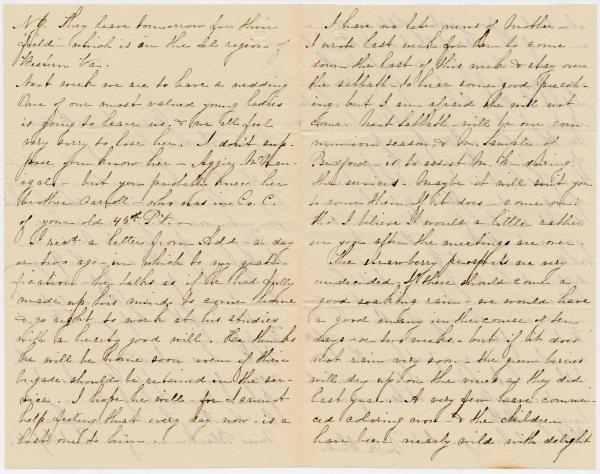 N.Y. They leave tomorrow for their
field – which is in the oil regions of
Western Va.
Next week we are to have a wedding
One of our most valued young ladies
is going to leave us, & we all feel
very sorry to lose her. I don't sup-
pose you know her – Aggie
– but you probably knew her
brother Carroll – who was in Co. C.
of your old 45th P.V. –
I recd a letter from Add – a day
or two ago – in which to my grati-
fication – he talks as if he had fully
made up his mind to come home
& go right to work at his studies
with a hearty good will. He thinks
he will be home soon even if their
brigade should be retained in the ser-
vice. I hope he will – for I cannot
help feeling that every day now – is a
lost one to him. –
I have no late news of Mother –
I wrote last week for her to come
down the last of this week & stay over
the sabbath – to hear some good preach-
ing, but I am afraid she will not
come. Next Sabbath – will be our com-
munion season & Mr. Sample of
Bedford – is to assist Mr. – during
the services. Maybe it will suit you
to come then. If it does – come on!
tho I believe I would a little rather
see you after the meetings are over.
The strawberry prospects are very
undecided. If there should come a
good soaking rain – we would have
a good many in the course of ten
days – or two weeks – but if it does
not rain very soon – the green berries
will dry up on the vines as they did
last year. A very few have commen-
ced coloring now – & the children
have been nearly wild with delight